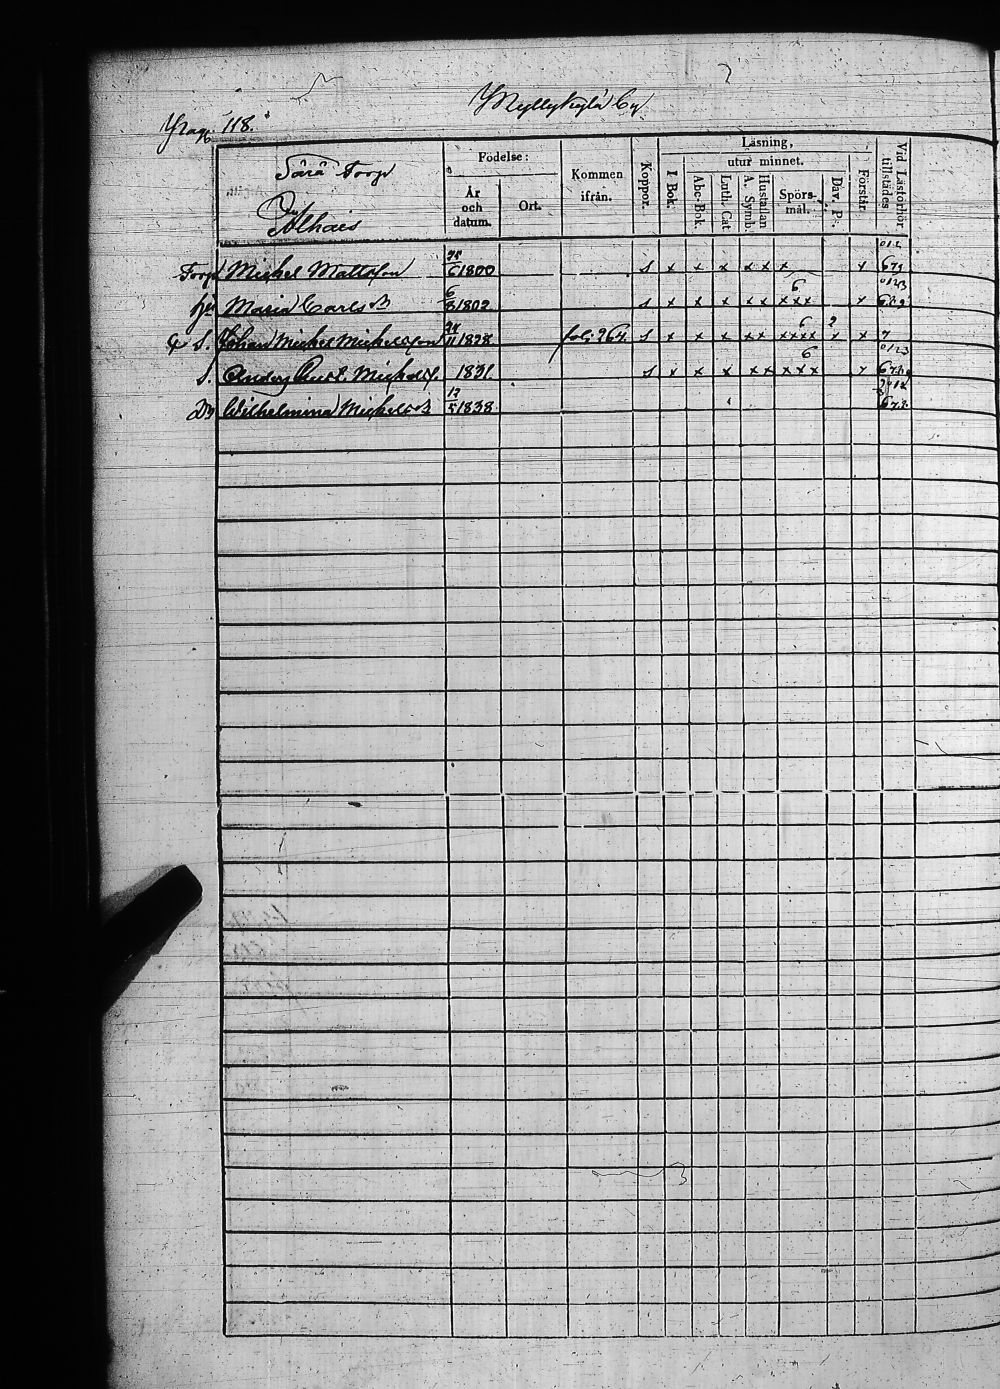 Myllykylä By
Pag. 118.
Läsning,
Födelse:
utur minnet.
Torp
Alhais
År och datum.
Ort.
Kommen ifrån.
Koppor.
I Bok.
Abc-Bok.
Luth. Cat
Hustaflan A. Symb.
Spörsmål.
Dav. Ps.
Förstår.
Vid Läsförhör tillstädes
Torp Michel Mattsson /6 1800 s x x x x x x x 673
hu Maria Carls D 6/3 1802 s x x x x x x x x x
S. Johan Michel Michelsson 24/11 1828 fol: 264. s x x x x x x x x x x x 7
S. Anders Gust. Michelss. 1831. s x x x x x x x x x
Dr Wilhelmina Michels D 12/5 1838. 673.